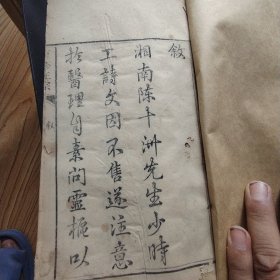 敘
湘南陈午洲先生少時
工詩文因不售遂注意
於醫理自素问靈樞以
敘